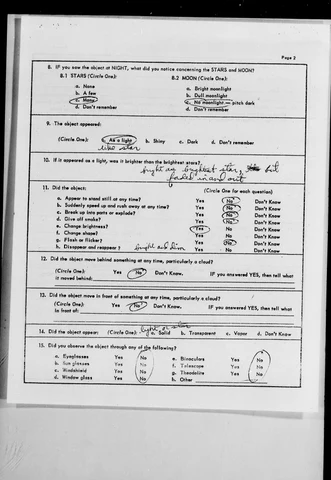 Page 2
8. IF you saw the object at NIGHT, what did you notice concerning the STARS and MOON?
8.1 STARS (Circle One): 8.2 MOON (Circle One):
a. None a. Bright moonlight
b. A few b. Dull moonlight
c. Many c. No moonlight — pitch dark
d. Don't remember d. Don't remember
9. The object appeared:
(Circle One): a. As a light b. Shiny c. Dark d. Don't remember
like star
10. If it appeared as a light, was it brighter than the brightest stars?
bright as brightest star, but
faded in and out
11. Did the object: (Circle One for each question)
a. Appear to stand still at any time? Yes No Don't Know
b. Suddenly speed up and rush away at any time? Yes No Don't Know
c. Break up into parts or explode? Yes No Don't Know
d. Give off smoke? Yes No Don't Know
e. Change brightness? Yes No Don't Know
f. Change shape? Yes No Don't Know
g. Flash or flicker? Yes No Don't Know
h. Disappear and reappear? bright and dim Yes No Don't Know
12. Did the object move behind something at any time, particularly a cloud?
(Circle One): Yes No Don't Know. IF you answered YES, then tell what
it moved behind:
13. Did the object move in front of something at any time, particularly a cloud?
(Circle One): Yes No Don't Know. IF you answered YES, then tell what
in front of:
light or star
14. Did the object appear: (Circle One): a. Solid b. Transparent c. Vapor d. Don't Know
15. Did you observe the object through any of the following?
a. Eyeglasses Yes No e. Binoculars Yes No
b. Sun glasses Yes No f. Telescope Yes No
c. Windshield Yes No g. Theodolite Yes No
d. Window glass Yes No h. Other